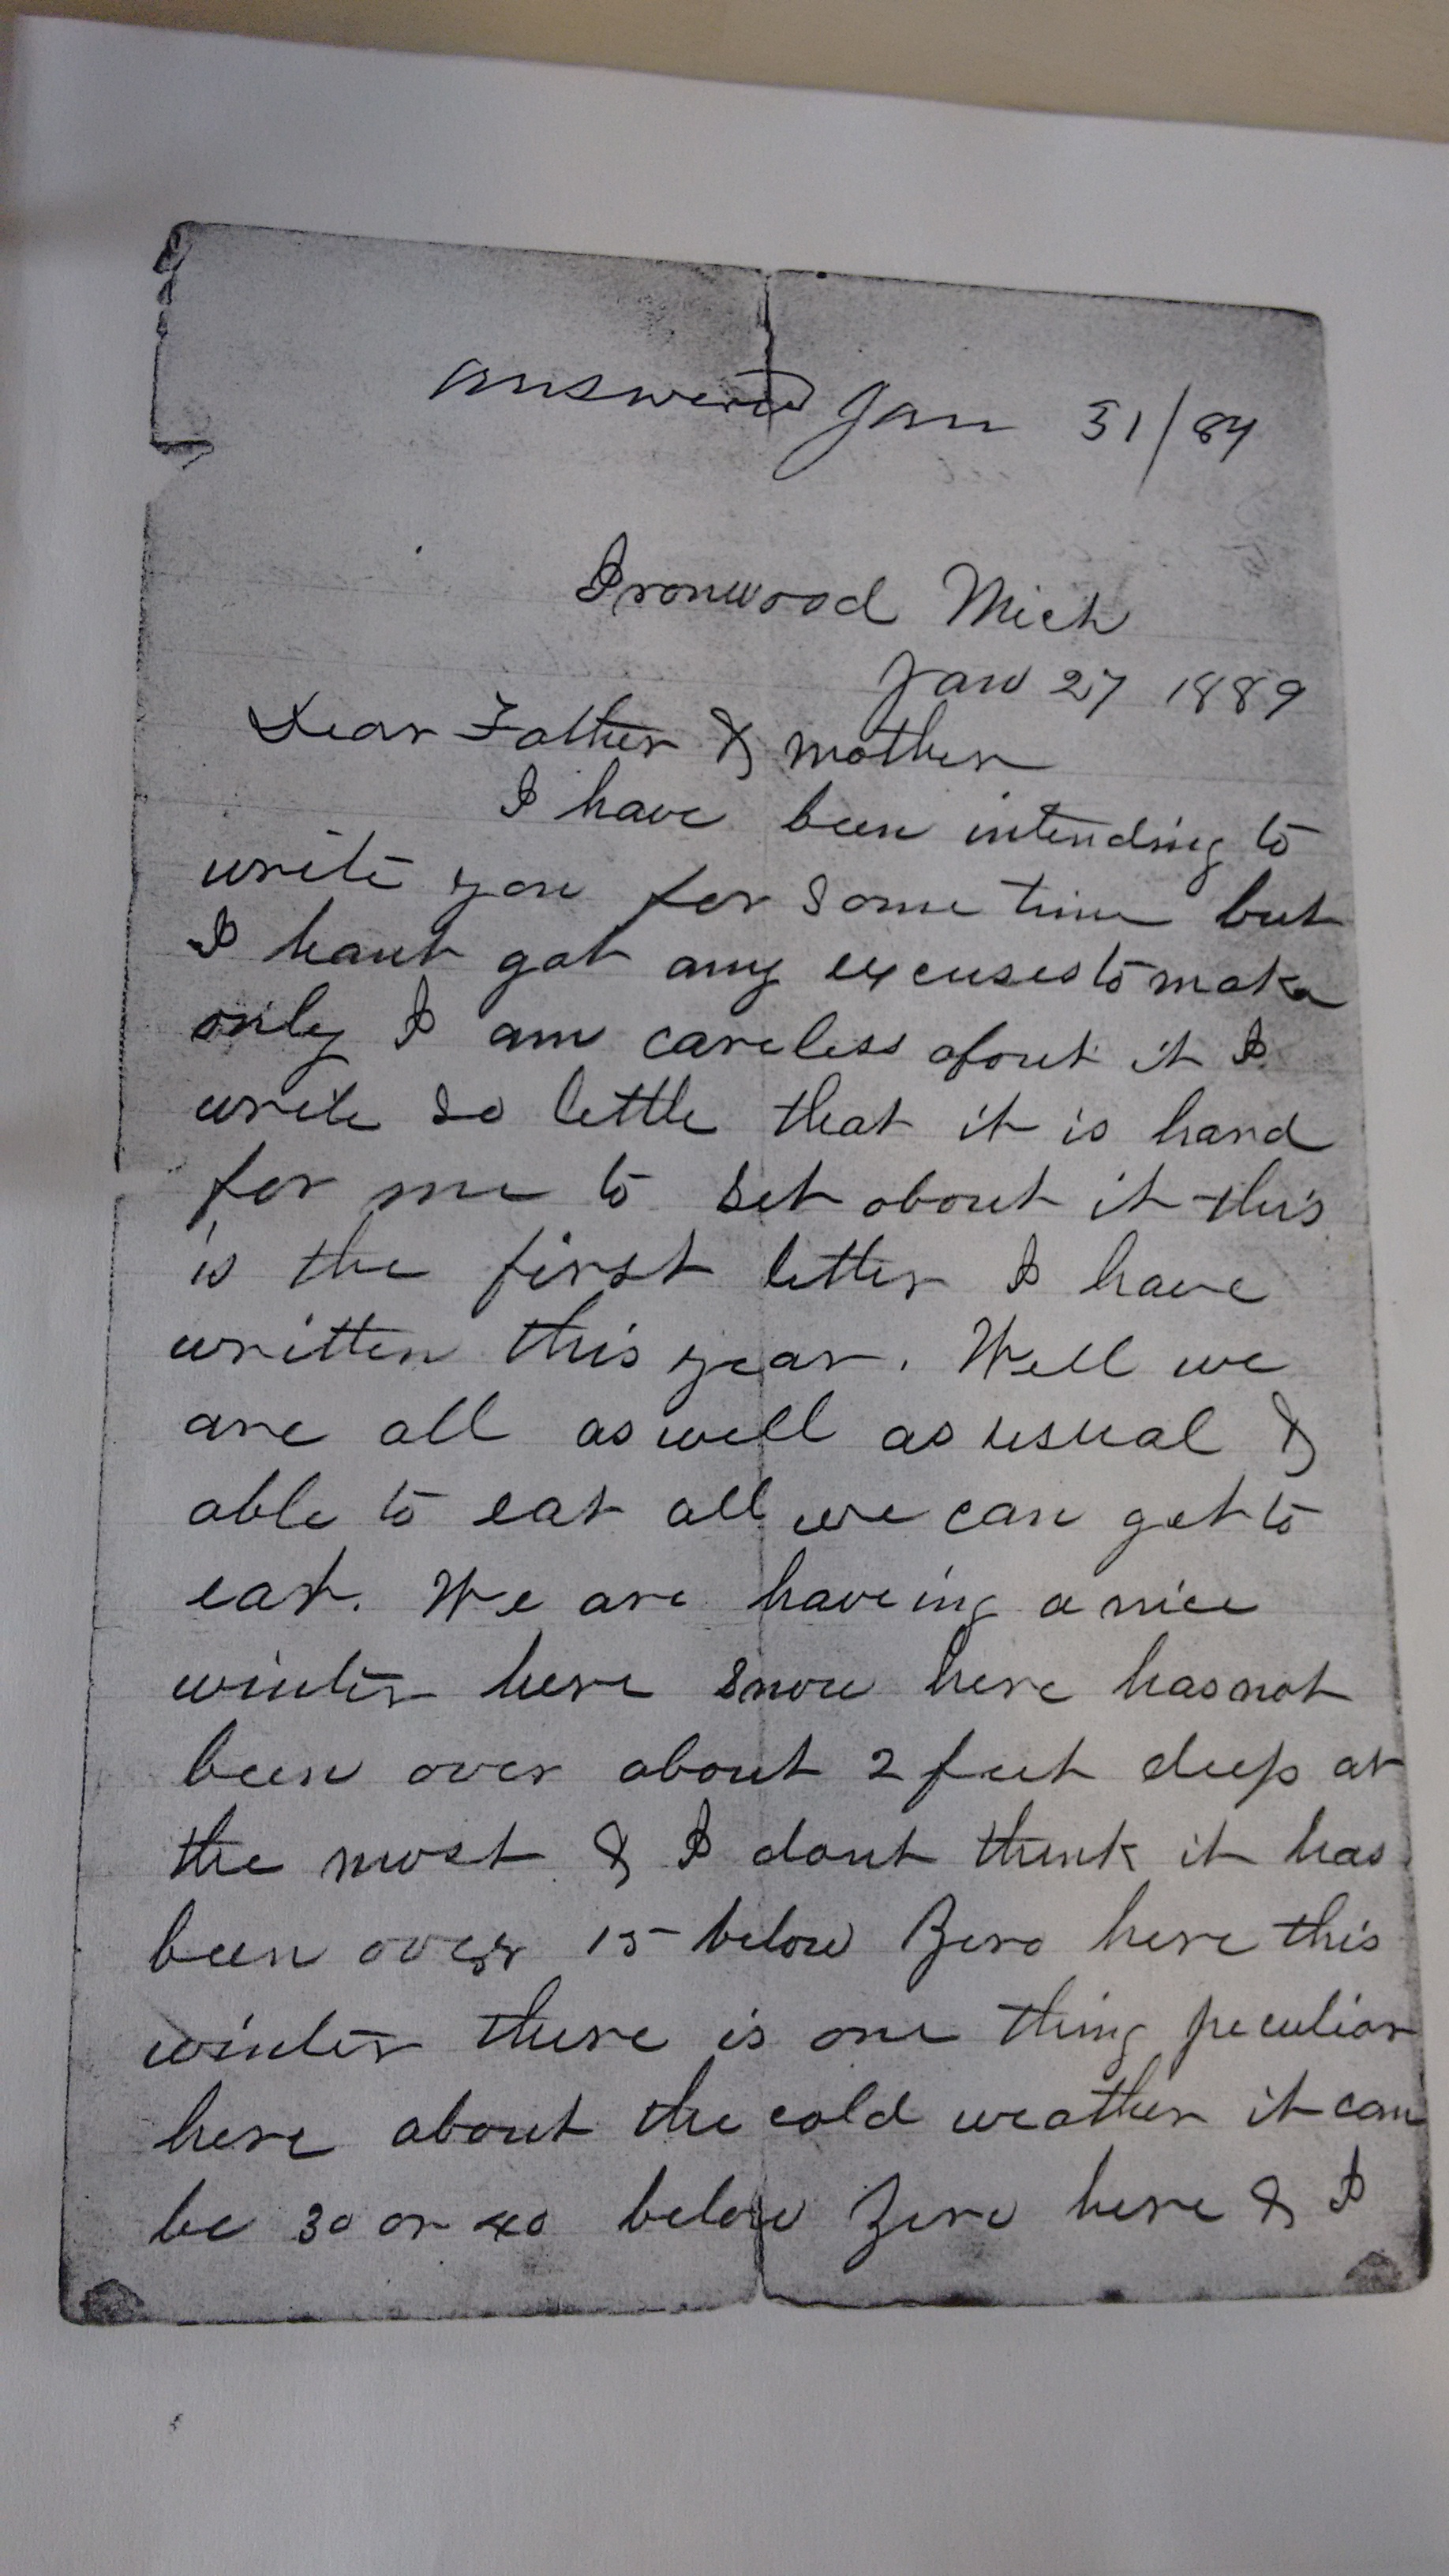 answered Jan 31/89
Ironwood Mich
Jan 27 1889
Dear Father & mother
I have been intending to
write you for some time but
I hant got any excuses to make
only I am careless about it I
write so little that it is hard
for me to set about it this
is the first letter I have
written this year. Well we
are all as well as usual &
able to eat all we can get to
eat. We are haveing a nice
winter here snow here has not
been over about 2 feet deep at
the most & I dont think it has
been over 15 below Zero here this
winter there is one thing peculiar
here about the cold weather it can
be 30 or 40 below Zero here & I